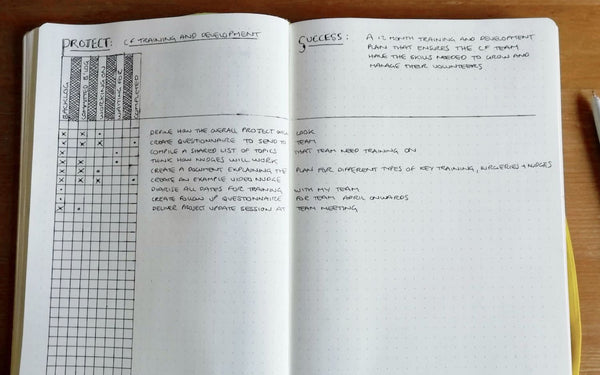 PROJECT: CF TRAINING AND DEVELOPMENT
BACKLOG
WORKING ON
WAITING FOR
COMPLETED
DEFINE HOW THE OVERALL PROJECT WILL LOOK
CREATE QUESTIONNAIRE TO SEND TO TEAM
COMPILE A SHARED LIST OF TOPICS THAT TEAM NEED TRAINING ON
THINK HOW NUDGES WILL WORK
CREATE A DOCUMENT EXPLAINING THE PLAN FOR DIFFERENT TYPES OF KEY TRAINING, + NUDGES
CREATE AN EXAMPLE VIDEO NUDGE
ALL DATES FOR TRAINING WITH MY TEAM
CREATE FOLLOW UP QUESTIONNAIRE FOR TEAM APRIL ONWARDS
DELIVER PROJECT UPDATE SESSION AT TEAM MEETING
SUCCESS: A 12 MONTH TRAINING AND DEVELOPMENT
PLAN THAT ENSURES THE CF TEAM
HAVE THE SKILLS NEEDED TO GROW AND
MANAGE THEIR VOLUNTEERS